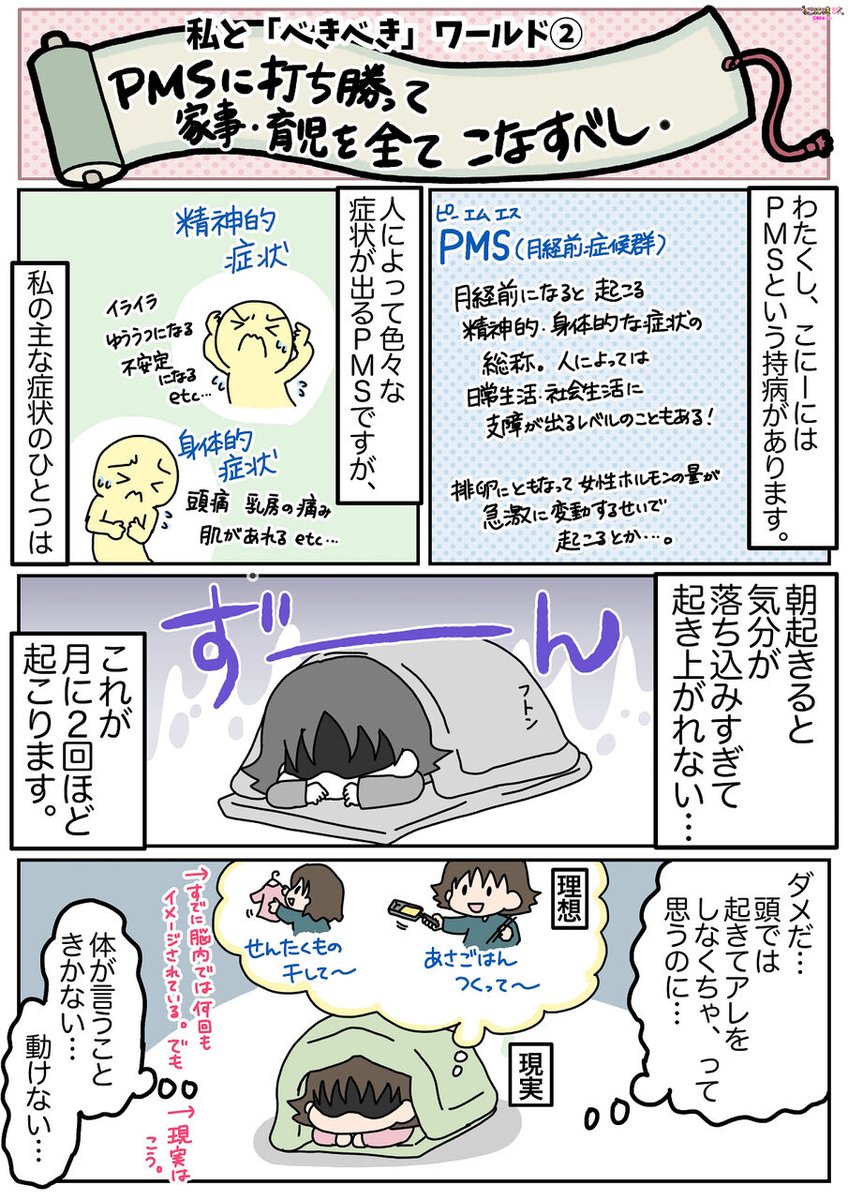 私と「べきべき」ワールド②
PMSに打ち勝って
家事・育児を全て こなすべし.
わたくし、こにーには
PMSという持病があります。
ピーエムエス
PMS(月経前症候群)
月経前になると 起こる
精神的・身体的な症状の
総称。人によっては
日常生活・社会生活に
支障が出るレベルのこともある!
排卵にともなって 女性ホルモンの量が
急激に変動するせいで
起こるとか…。
人によって色々な
症状が出るPMSですが、
精神的
症状
イライラ
ゆううつになる
不安定
になる
etc…
身体的
症状
頭痛 乳房の痛み
肌があれる etc…
私の主な症状のひとつは
朝起きると
気分が
落ち込みすぎて
起き上がれない…
ずーーん
フトン
これが
月に2回ほど
起こります。
ダメだ…
頭では
起きてアレを
しなくちゃ、って
思うのに…
理想
あさごはん
つくって〜
せんたくもの
干して〜
→すでに脳内では何回も
イメージされている。でも
現実
→現実は
こう。
体が言うこと
きかない…
動けない…